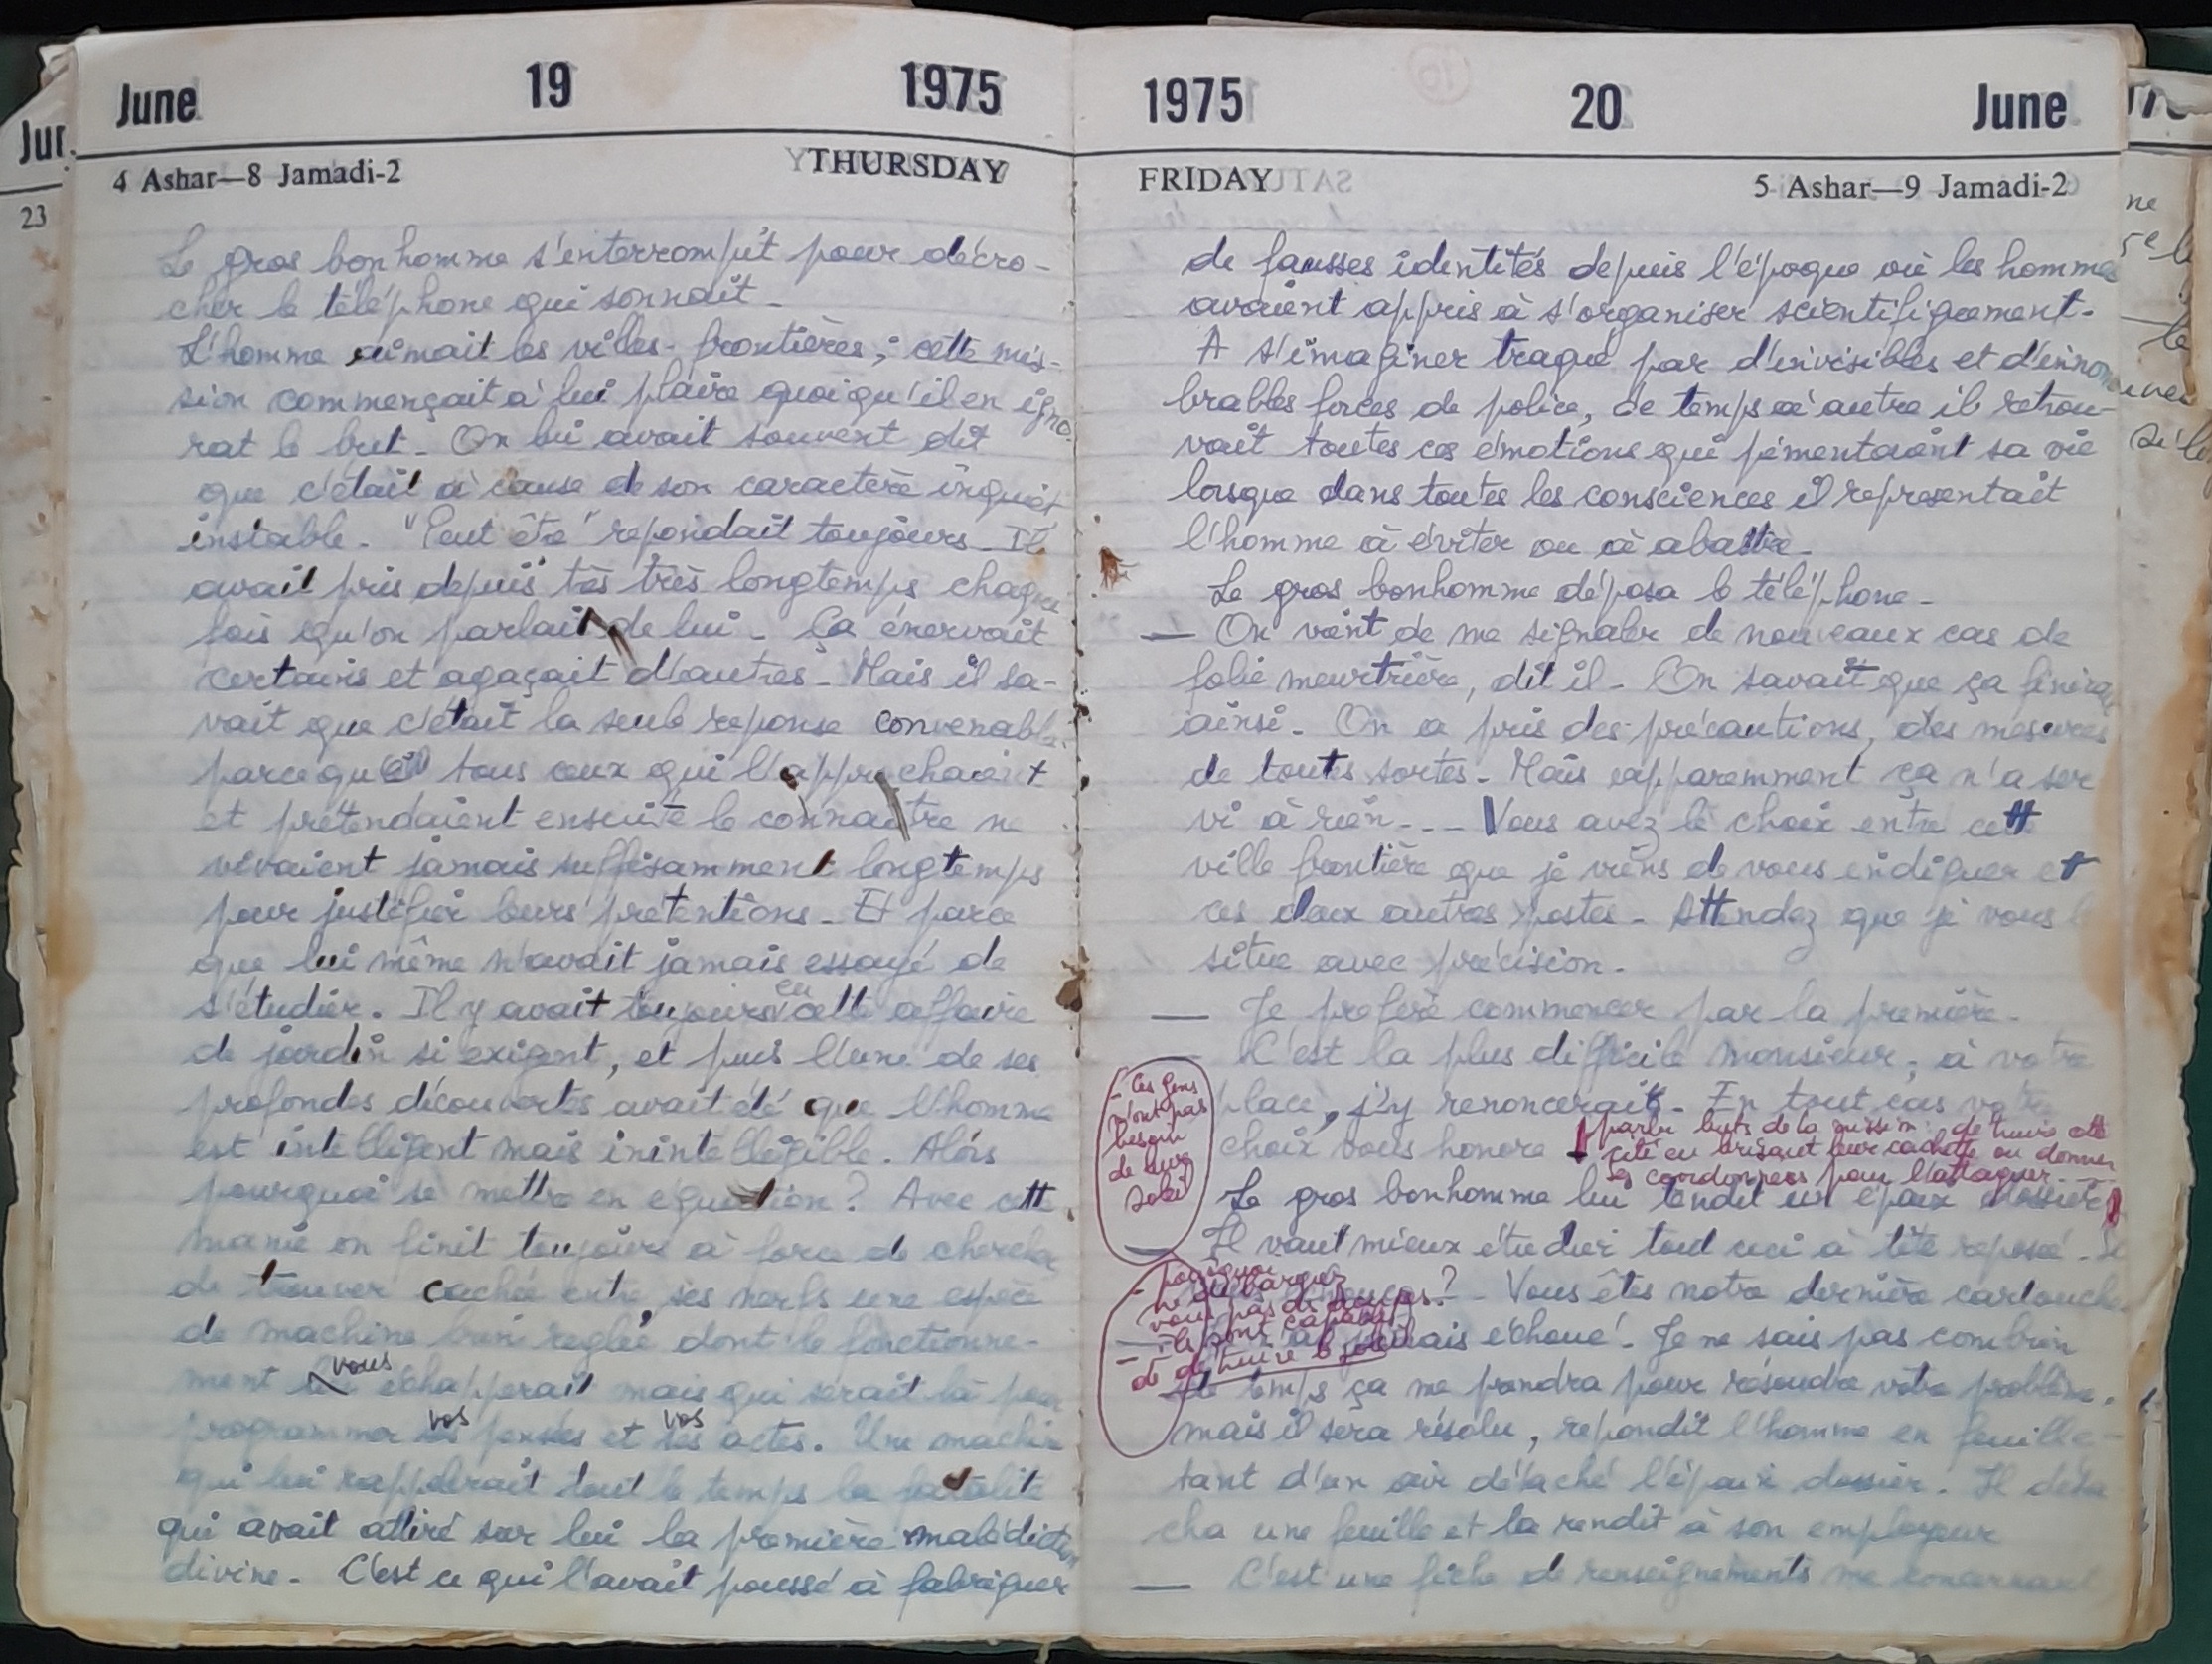 June 19 1975
4 Ashar—8 Jamadi-2 THURSDAY
Le gros bonhomme s'enterrompit pour décro-
cher le téléphone qui sonnait_
L'homme aimait les villes-frontières; cette mis-
sion commençait à lui plaire quoiqu'il en igno-
rat le but_ On lui avait souvent dit
que c'était à cause de son caractère inquiet
instable. "Peut être" repondait toujours_ Il
avait pris depuis très très longtemps chaque
fois qu'on parlait de lui_ Ça énervait
certains et agaçait d'autres_ Mais il sa-
vait que c'était la seule reponse convenable
parce que tous ceux qui l'approchaient
et prétendaient ensuite le connaître ne
vivaient jamais suffisamment longtemps
pour justifier leurs pretentions_ Et parce
que lui même n'avait jamais essayé de
s'étudier. Il y avait toujours eu cette affaire
de jardin si exigent, et puis l'une de ses
profondes découvertes avait été que l'homme
est intelligent mais inintelligible. Alors
pourquoi se mettre en équation? Avec cette
manie on finit toujours à force de chercher
de trouver cachée entre ses nerfs une espèce
de machine bien reglée dont le fonctionne-
ment vous échapperait mais qui serait là pour
programmer vos pensées et vos actes. Une machine
qui lui rappelerait tout le temps la fatalité
qui avait attiré sur lui la première malédiction
divine_ C'est ce qui l'avait poussé à fabriquer
1975 20 June
FRIDAY 5 Ashar—9 Jamadi-2
de fausses identités depuis l'époque où les hommes
avaient appris à s'organiser scientifiquement.
A s'imaginer traqué par d'invisibles et d'innom-
brables forces de police, de temps à autre il retrou-
vait toutes ces émotions qui pimentaient sa vie
lorsque dans toutes les consciences il representait
l'homme à éviter ou à abattre_
Le gros bonhomme déposa le téléphone_
— On vient de me signaler de nouveaux cas de
folie meurtrière, dit il_ On savait que ça finirait
ainsi_ On a pris des précautions, des mesures
de toutes sortes_ Mais apparemment ça n'a ser
vi à rien... Vous avez le choix entre cette
ville frontière que je viens de vous endiquer et
ces deux autres postes_ Attendez que je vous les
situe avec précision.
— Je prefère commencer par la première_
— C'est la plus difficile monsieur, à votre
place, j'y renoncerais_ En tout cas votre
choix vous honore
parler buts de la mission: detruire cette
cité en brisant leur cachette ou donner
les coordonnees pour l'attaquer...
- Ces gens
n'ont pas
besoin
de leur
soleil
Le gros bonhomme lui tendit un épaix dossier
— Il vaut mieux étudier tout ceci à tête reposée_
échouez?_ Vous êtes notre dernière cartouche
- pourquoi
vous pas de
- ils sont capables
de détruire le soleil
— jamais échoué. Je ne sais pas combien
de temps ça me prendra pour résoudre votre problème.
mais il sera résolu, repondit l'homme en feuille-
tant d'un air détaché l'épaix dossier. Il déta
cha une feuille et la rendit à son employeur
— C'est une fiche de renseignements me concernant